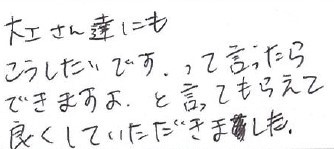 大工さん達にも
こうしたいです.って言ったら
できますよ.と言ってもらえて
良くしていただきました.